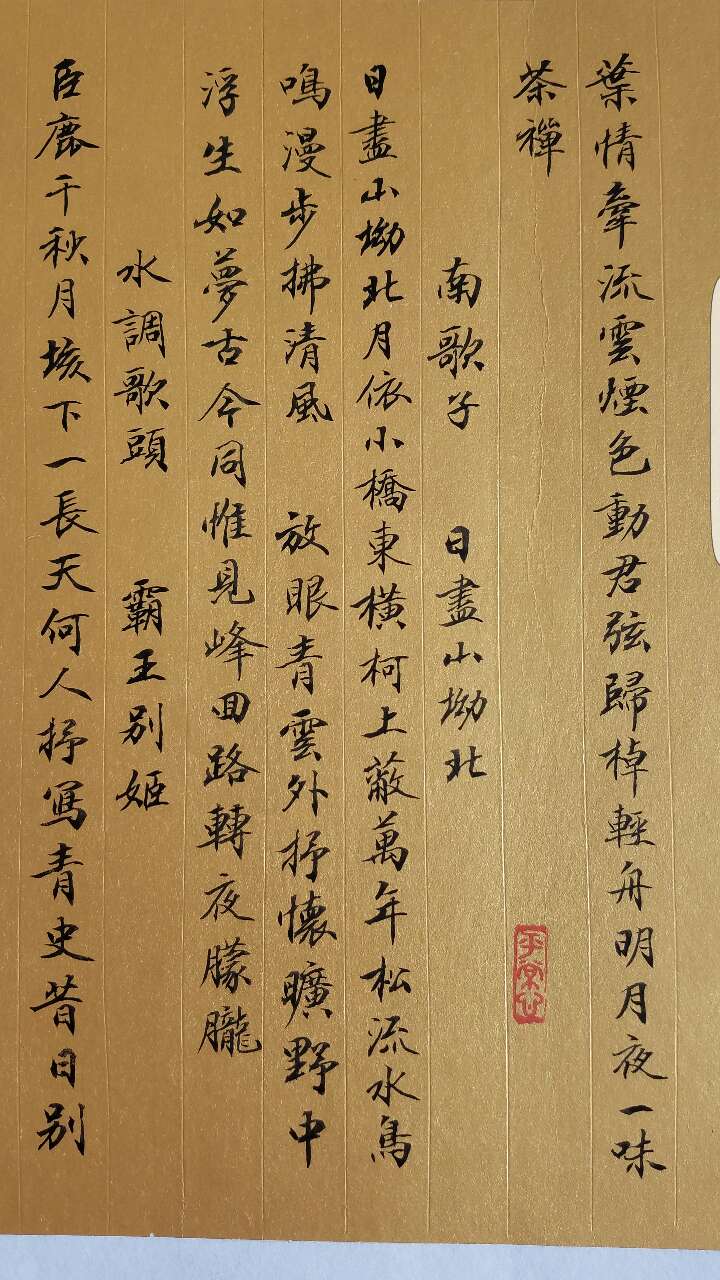 葉情牽流雲煙色動君弦歸棹輕舟明月夜一味
茶禪
平常心
南歌子 日盡山坳北
日盡山坳北月依小橋東橫柯上蔽萬年松流水鳥
鳴漫步拂清風 放眼青雲外抒懷曠野中
浮生如夢古今同惟見峰回路轉夜朦朧
水調歌頭 霸王別姬
巨鹿千秋月垓下一長天何人抒寫青史昔日別